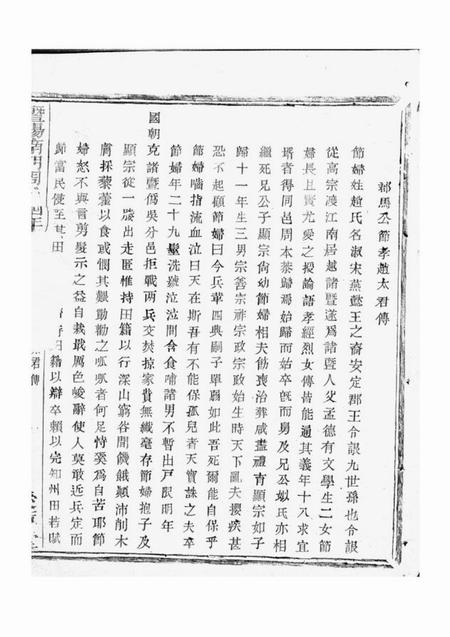 郝馬公節孝趙太君傳
節婦姓趙氏名淑宋燕懿王之裔安定郡王令詪九世孫也令詪
從高宗渡江南居越諸暨遂爲諸暨人父孟德有文學生二女節
婦長且賢尤愛之授論語孝經烈女傳皆能通其義年十八求宜
壻者得同邑周本恭歸焉始歸而始卒旣而舅及兄公姒氏亦相
繼死兄公子顯宗尙幼節婦相夫飭喪治葬咸盡禮育顯宗如子
歸十一年生三男宗善宗祚宗政宗政始生時天下亂夫攖疾甚
恐不起顧節婦曰今兵華四興嗣子單弱如此吾死爾能自保乎
節婦嚙指流血泣曰天在斯吾有不能保孤兒者天實誅之夫卒
節婦年二十九壑洗號泣泣間含食哺諸男不暫出戸限明年
國朝克諸暨僞吳分邑拒戰兩兵交焚掠家貲無纖毫存節婦抱子及
顯宗從一媵出走匿惟持田籍以行深山窮谷間饑餓頻沛削木
膚採藜藿以食或憫其艱勸勸之呱呱者何足恃奚爲自苦耶節
婦怒不與言剪髮示之益自栽最厲色峻辭使人莫敢近兵定而
歸富民侵至其田 籍以辯卒賴以完知州田若賦
暨陽南門周氏
君傳